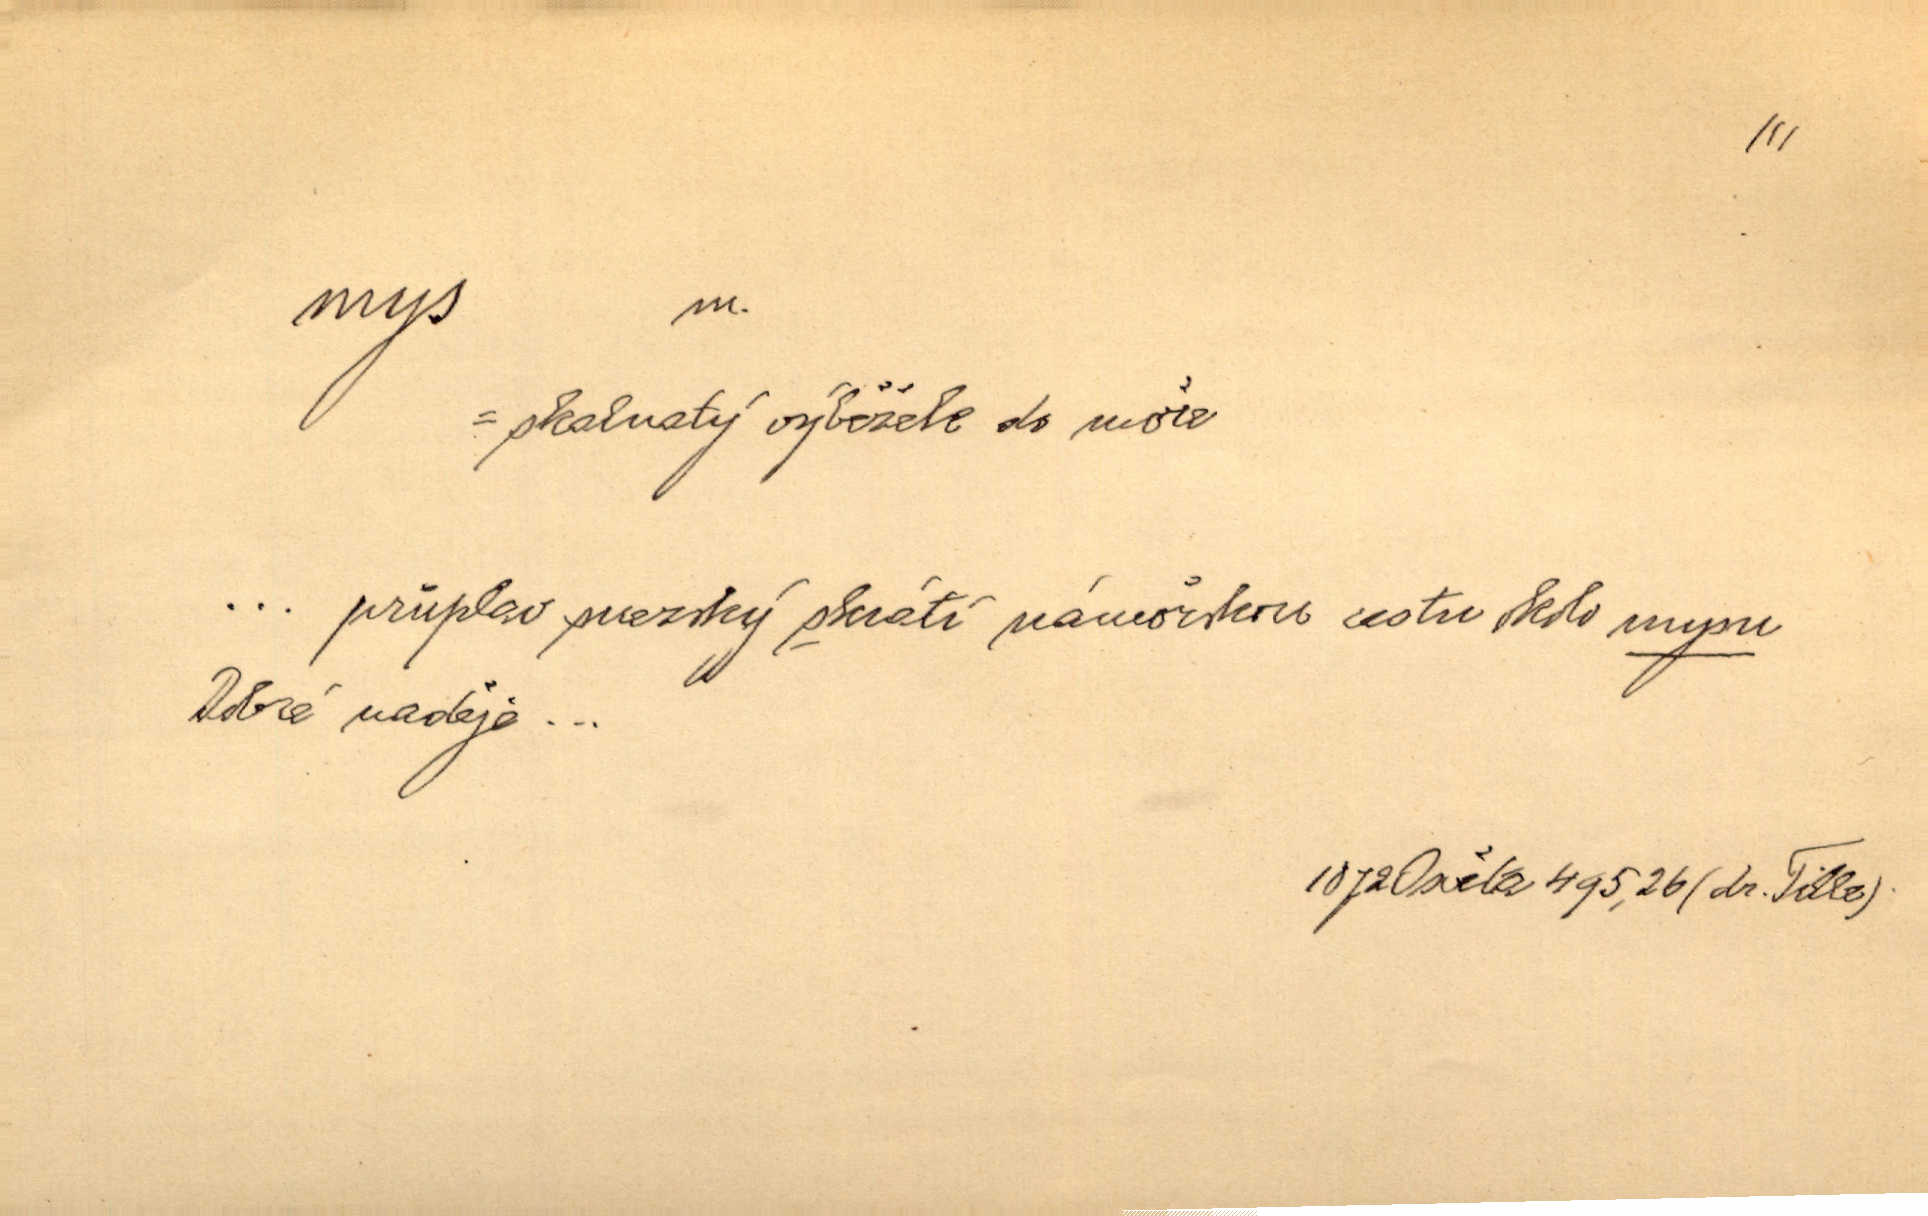 mys m.
= skalnatý výběžek do moře
... průplav suezský skrátí námořskou cestu okolo mysu
Dobré naděje ...
1872 Osvěta 495,26 (dr. Tille).